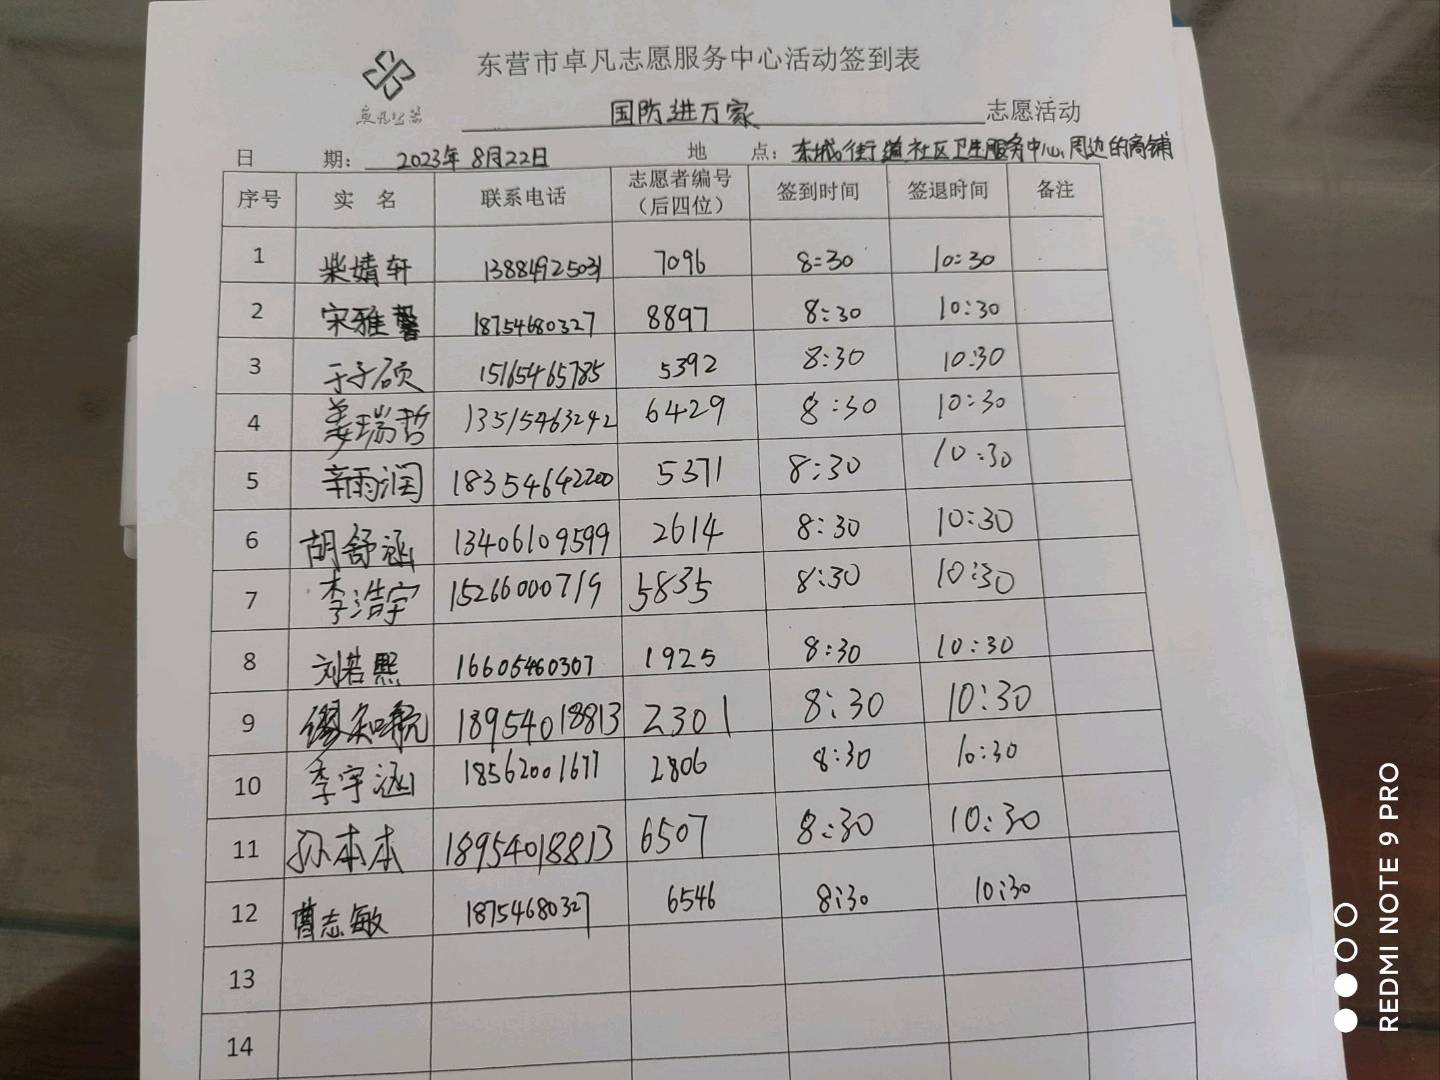 东营市卓凡志愿服务中心活动签到表
卓凡公益
国防进万家 志愿活动
日 期： 2023年8月22日 地 点： 东城街道社区卫生服务中心周边的商铺
序号 实 名 联系电话 志愿者编号（后四位） 签到时间 签退时间 备注
1 柴婧轩 13884925031 7096 8:30 10:30
2 宋雅馨 18754680327 8897 8:30 10:30
3 于子硕 15165465785 5392 8:30 10:30
4 姜瑞哲 13515463242 6429 8:30 10:30
5 辛雨润 18354642200 5371 8:30 10:30
6 胡舒涵 13406109599 2614 8:30 10:30
7 李浩宇 15266000719 5835 8:30 10:30
8 刘若熙 16605460307 1925 8:30 10:30
9 缪知航 18954018813 2301 8:30 10:30
10 季宇涵 18562001677 2806 8:30 10:30
11 孙本本 18954018813 6507 8:30 10:30
12 曹志敏 18754680327 6546 8:30 10:30
13
14
REDMI NOTE 9 PRO